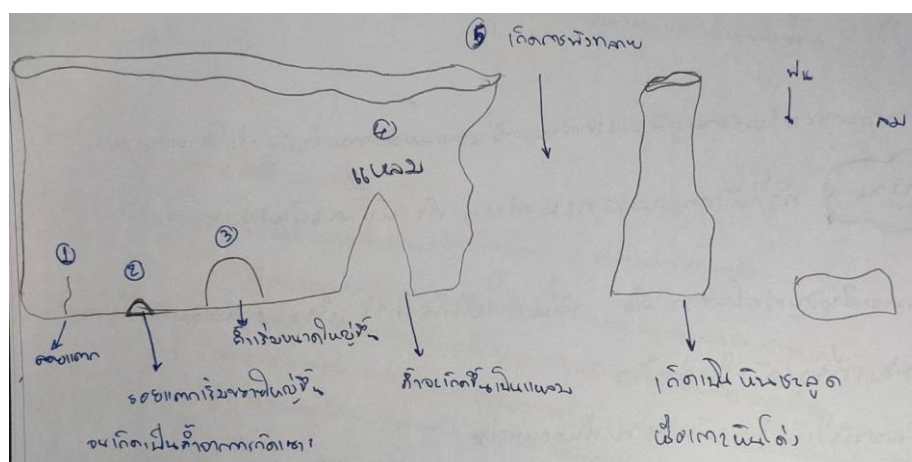 ⑤ เกิดการพังทลาย
ฝน
ลม
④
แหลม
③
①
②
รอยแตก
ถ้ำเริ่มขนาดใหญ่ขึ้น
รอยแตกเริ่มขยายใหญ่ขึ้น
จนเกิดเป็นถ้ำจากการกัดเซาะ
ถ้ำจะเกิดขึ้นเป็นแหลม
เกิดเป็นหินชะลูด
หรือเกาะหินโด่ง